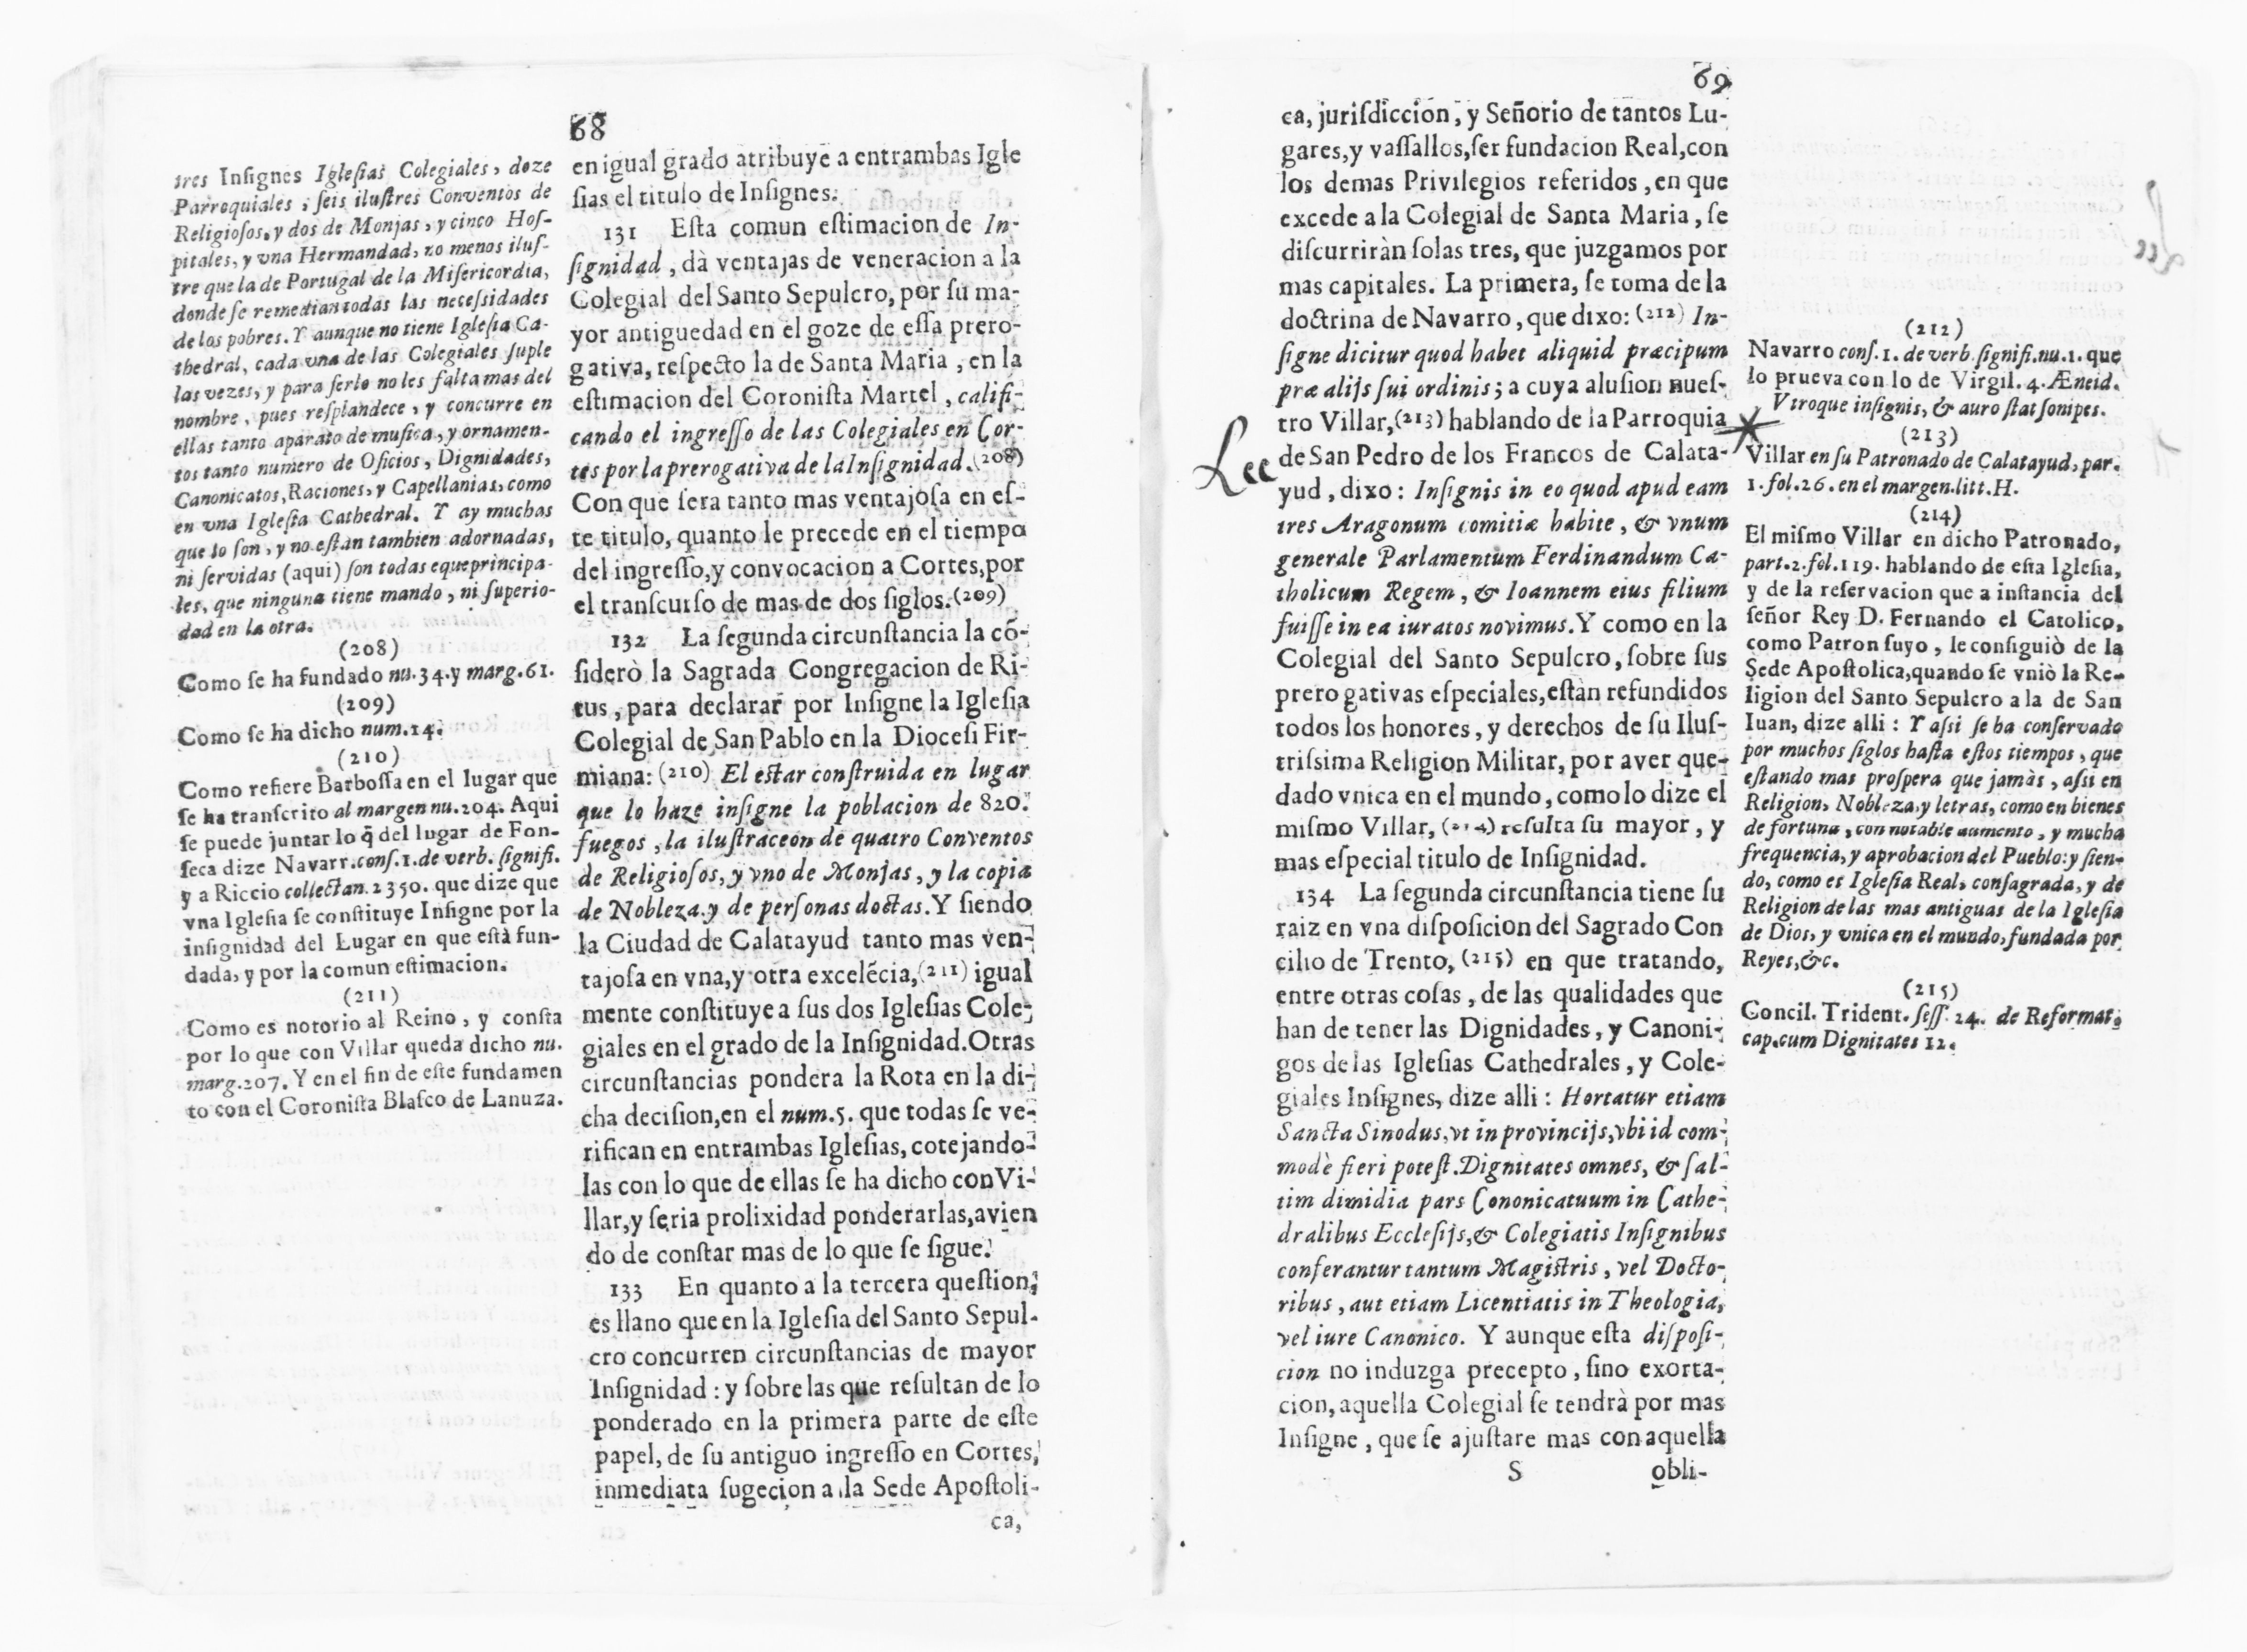 68
tres Insignes Iglesias Colegiales, doze
Parroquiales, seis ilustres Conventos de
Religiosos, y dos de Monjas, y cinco Hos-
pitales, y vna Hermandad, no menos ilus-
tre que la de Portugal de la Misericordia,
donde se remedian todas las necessidades
de los pobres. Y aunque no tiene Iglesia Ca-
thedral, cada vna de las Colegiales suple
las vezes, y para serlo no les falta mas del
nombre, pues resplandece, y concurre en
ellas tanto aparato de musica, y ornamen-
tos tanto numero de Oficios, Dignidades,
Canonicatos, Raciones, y Capellanias, como
en vna Iglesia Cathedral. Y ay muchas
que lo son, y no estàn tambien adornadas,
ni servidas (aqui) son todas equeprincipa-
les, que ninguna tiene mando, ni superio-
dad en la otra.
(208)
Como se ha fundado nu.34.y marg.61.
(209)
Como se ha dicho num.14.
(210)
Como refiere Barbossa en el lugar que
se ha transcrito al margen nu.204. Aqui
se puede juntar lo q̃ del lugar de Fon-
seca dize Navarr.cons.1.de verb. signifi.
y a Riccio collectan.2350. que dize que
vna Iglesia se constituye Insigne por la
insignidad del Lugar en que està fun-
dada, y por la comun estimacion.
(211)
Como es notorio al Reino, y consta
por lo que con Villar queda dicho nu.
marg.207. Y en el fin de este fundamen
to con el Coronista Blasco de Lanuza.
en igual grado atribuye a entrambas Igle
sias el titulo de Insignes.
131 Esta comun estimacion de In-
signidad, dà ventajas de veneracion a la
Colegial del Santo Sepulcro, por su ma-
yor antiguedad en el goze de essa prero-
gativa, respecto la de Santa Maria, en la
estimacion del Coronista Martel, califi-
cando el ingresso de las Colegiales en Cor-
tes por la prerogativa de la Insignidad.(208)
Con que sera tanto mas ventajosa en es-
te titulo, quanto le precede en el tiempo
del ingresso, y convocacion a Cortes, por
el transcurso de mas de dos siglos.(209)
132 La segunda circunstancia la cõ-
siderò la Sagrada Congregacion de Ri-
tus, para declarar por Insigne la Iglesia
Colegial de San Pablo en la Diocesi Fir-
miana: (210) El estar construida en lugar
que lo haze insigne la poblacion de 820.
fuegos, la ilustraceon de quatro Conventos
de Religiosos, y vno de Monjas, y la copia
de Nobleza.y de personas doctas. Y siendo
la Ciudad de Calatayud tanto mas ven-
tajosa en vna, y otra excelẽcia,(211) igual
mente constituye a sus dos Iglesias Cole-
giales en el grado de la Insignidad. Otras
circunstancias pondera la Rota en la di-
cha decision, en el num.5. que todas se ve-
rifican en entrambas Iglesias, cotejando-
las con lo que de ellas se ha dicho con Vi-
llar, y seria prolixidad ponderarlas, avien
do de constar mas de lo que se sigue.
133 En quanto a la tercera question,
es llano que en la Iglesia del Santo Sepul-
cro concurren circunstancias de mayor
Insignidad: y sobre las que resultan de lo
ponderado en la primera parte de este
papel, de su antiguo ingresso en Cortes,
inmediata sugecion a la Sede Apostoli-
ca,
69
ca, jurisdiccion, y Señorio de tantos Lu-
gares, y vassallos, ser fundacion Real, con
los demas Privilegios referidos, en que
excede a la Colegial de Santa Maria, se
discurriràn solas tres, que juzgamos por
mas capitales. La primera, se toma de la
doctrina de Navarro, que dixo: (212) In-
signe dicitur quod habet aliquid præcipum
præ alijs sui ordinis; a cuya alusion nues-
tro Villar,(213) hablando de la Parroquia
Lee
de San Pedro de los Francos de Calata-
yud, dixo: Insignis in eo quod apud eam
tres Aragonum comitiæ habite, & vnum
generale Parlamentum Ferdinandum Ca-
tholicum Regem, & Ioannem eius filium
fuisse in ea iuratos novimus. Y como en la
Colegial del Santo Sepulcro, sobre sus
prerogativas especiales, estàn refundidos
todos los honores, y derechos de su Ilus-
trissima Religion Militar, por aver que-
dado vnica en el mundo, como lo dize el
mismo Villar, (214) resulta su mayor, y
mas especial titulo de Insignidad.
134 La segunda circunstancia tiene su
raiz en vna disposicion del Sagrado Con
cilio de Trento, (215) en que tratando,
entre otras cosas, de las qualidades que
han de tener las Dignidades, y Canoni-
gos de las Iglesias Cathedrales, y Cole-
giales Insignes, dize alli: Hortatur etiam
Sancta Sinodus, vt in provincijs, vbi id com-
modè fieri potest. Dignitates omnes, & sal-
tim dimidia pars Cononicatuum in Cathe-
dralibus Ecclesijs, & Colegiatis Insignibus
conferantur tantum Magistris, vel Docto-
ribus, aut etiam Licentiatis in Theologia,
vel iure Canonico. Y aunque esta disposi-
cion no induzga precepto, sino exorta-
cion, aquella Colegial se tendrà por mas
Insigne, que se ajustare mas con aquella
S obli-
(212)
Navarro cons.1. de verb.signifi.nu.1. que
lo prueva con lo de Virgil. 4. Æneid.
Vtroque insignis, & auro stat sonipes.
(213)
Villar en su Patronado de Calatayud, par.
1.fol.26. en el margen.litt.H.
(214)
El mismo Villar en dicho Patronado,
part.2.fol.119. hablando de esta Iglesia,
y de la reservacion que a instancia del
señor Rey D. Fernando el Catolico,
como Patron suyo, le consiguiò de la
Sede Apostolica, quando se vniò la Re-
ligion del Santo Sepulcro a la de San
Iuan, dize alli: Y assi se ha conservado
por muchos siglos hasta estos tiempos, que
estando mas prospera que jamàs, assi en
Religion, Nobleza, y letras, como en bienes
de fortuna, con notable aumento, y mucha
frequencia, y aprobacion del Pueblo: y sien-
do, como es Iglesia Real, consagrada, y de
Religion de las mas antiguas de la Iglesia
de Dios, y vnica en el mundo, fundada por
Reyes, &c.
(215)
Concil. Trident. sess. 24. de Reformat.
cap.cum Dignitates 12.